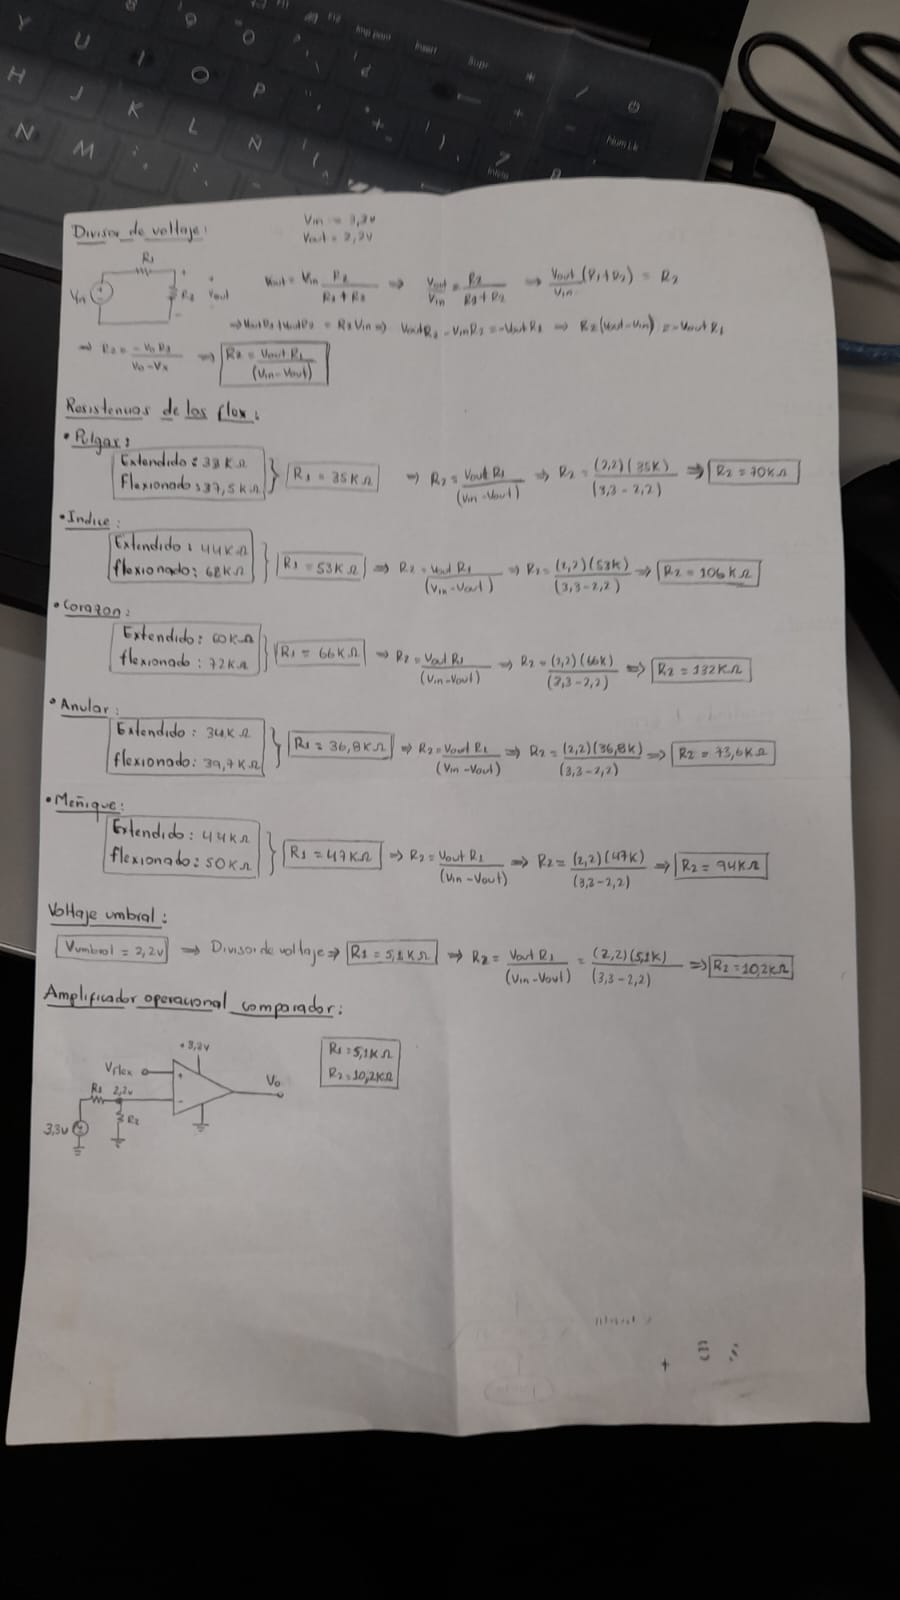 Y U I O P
H J K L Ñ
N M
Imp pant Insert Supr
Inicio
Num Lk
Divisor de voltaje:
Vin = 3,3v
Vout = 2,2v
R1
Vin R2 Vout
+
-
Vout = Vin R2 / (R1 + R2) => Vout / Vin = R2 / (R1 + R2) => Vout (R1+R2) / Vin = R2
=> Vout R1 + Vout R2 = R2 Vin => Vout R2 - Vin R2 = -Vout R1 => R2 (Vout-Vin) = -Vout R1
=> R2 = -Vo R1 / => R2 = Vout R1 / (Vin-Vout)
Resistencias de los flex:
• Pulgar:
Extendido: 33 KΩ
Flexionado: 37,5 KΩ
} R1 = 35KΩ => R2 = Vout R1 / (Vin -Vout) => R2 = (2,2)(35K) / (3,3-2,2) => R2 = 70KΩ
• Indice:
Extendido: 44KΩ
flexionado: 62KΩ
} R1 = 53KΩ => R2 = Vout R1 / (Vin-Vout) => R2 = (2,2)(53K) / (3,3-2,2) => R2 = 106KΩ
• Corazon:
Extendido: 60KΩ
flexionado: 72KΩ
} R1 = 66KΩ => R2 = Vout R1 / (Vin-Vout) => R2 = (2,2)(66K) / (3,3-2,2) => R2 = 132KΩ
• Anular:
Extendido: 34KΩ
flexionado: 39,7KΩ
} R1 = 36,8KΩ => R2 = Vout R1 / (Vin -Vout) => R2 = (2,2)(36,8K) / (3,3-2,2) => R2 = 73,6KΩ
• Meñique:
Extendido: 44KΩ
flexionado: 50KΩ
} R1 = 47KΩ => R2 = Vout R1 / (Vin -Vout) => R2 = (2,2)(47K) / (3,3-2,2) => R2 = 94KΩ
Voltaje umbral:
Vumbral = 2,2v => Divisor de voltaje => R1 = 5,1KΩ => R2 = Vout R1 / (Vin-Vout) = (2,2)(5,1K) / (3,3-2,2) => R2 = 10,2KΩ
Amplificador operacional comparador:
+3,3v
Vflex +
R1 2,2v -
Vo
R2
3,3v
R1 = 5,1KΩ
R2 = 10,2KΩ